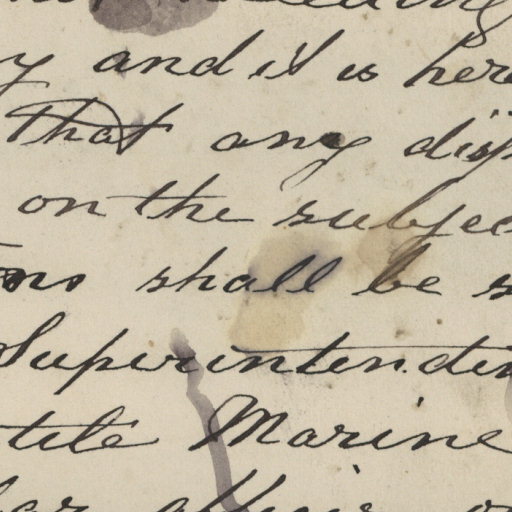 y and it is here
that any disp
on the subjec
ns shall be s
Superintenden
tile Marine